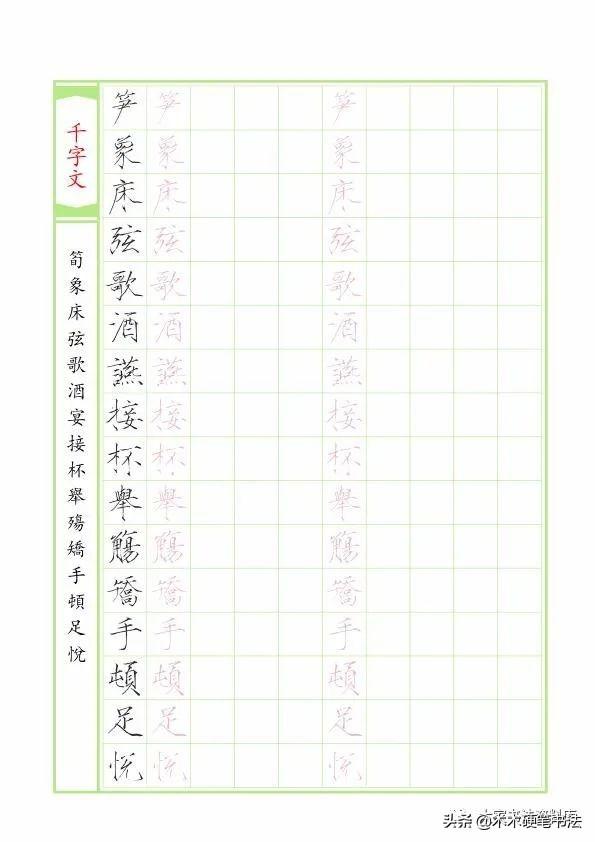 千字文
筍象床弦歌酒宴接杯舉殤矯手頓足悅
笋 笋 笋
象 象 象
床 床 床
弦 弦 弦
歌 歌 歌
酒 酒 酒
讌 讌 讌
接 接 接
杯 杯 杯
舉 舉 舉
觴 觴 觴
矯 矯 矯
手 手 手
頓 頓 頓
足 足 足
悅 悅 悅
头条 @不不硬笔书法